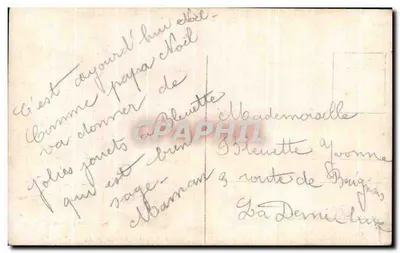 C'est aujourd'hui Noël -
Comme papa Noël
va donner de
jolies jouets à Bleuette
qui est bien
sage -
Maman
Mademoiselle
Bleuette Yvonne
3 route de
La Demi-lune
CPAPHIL